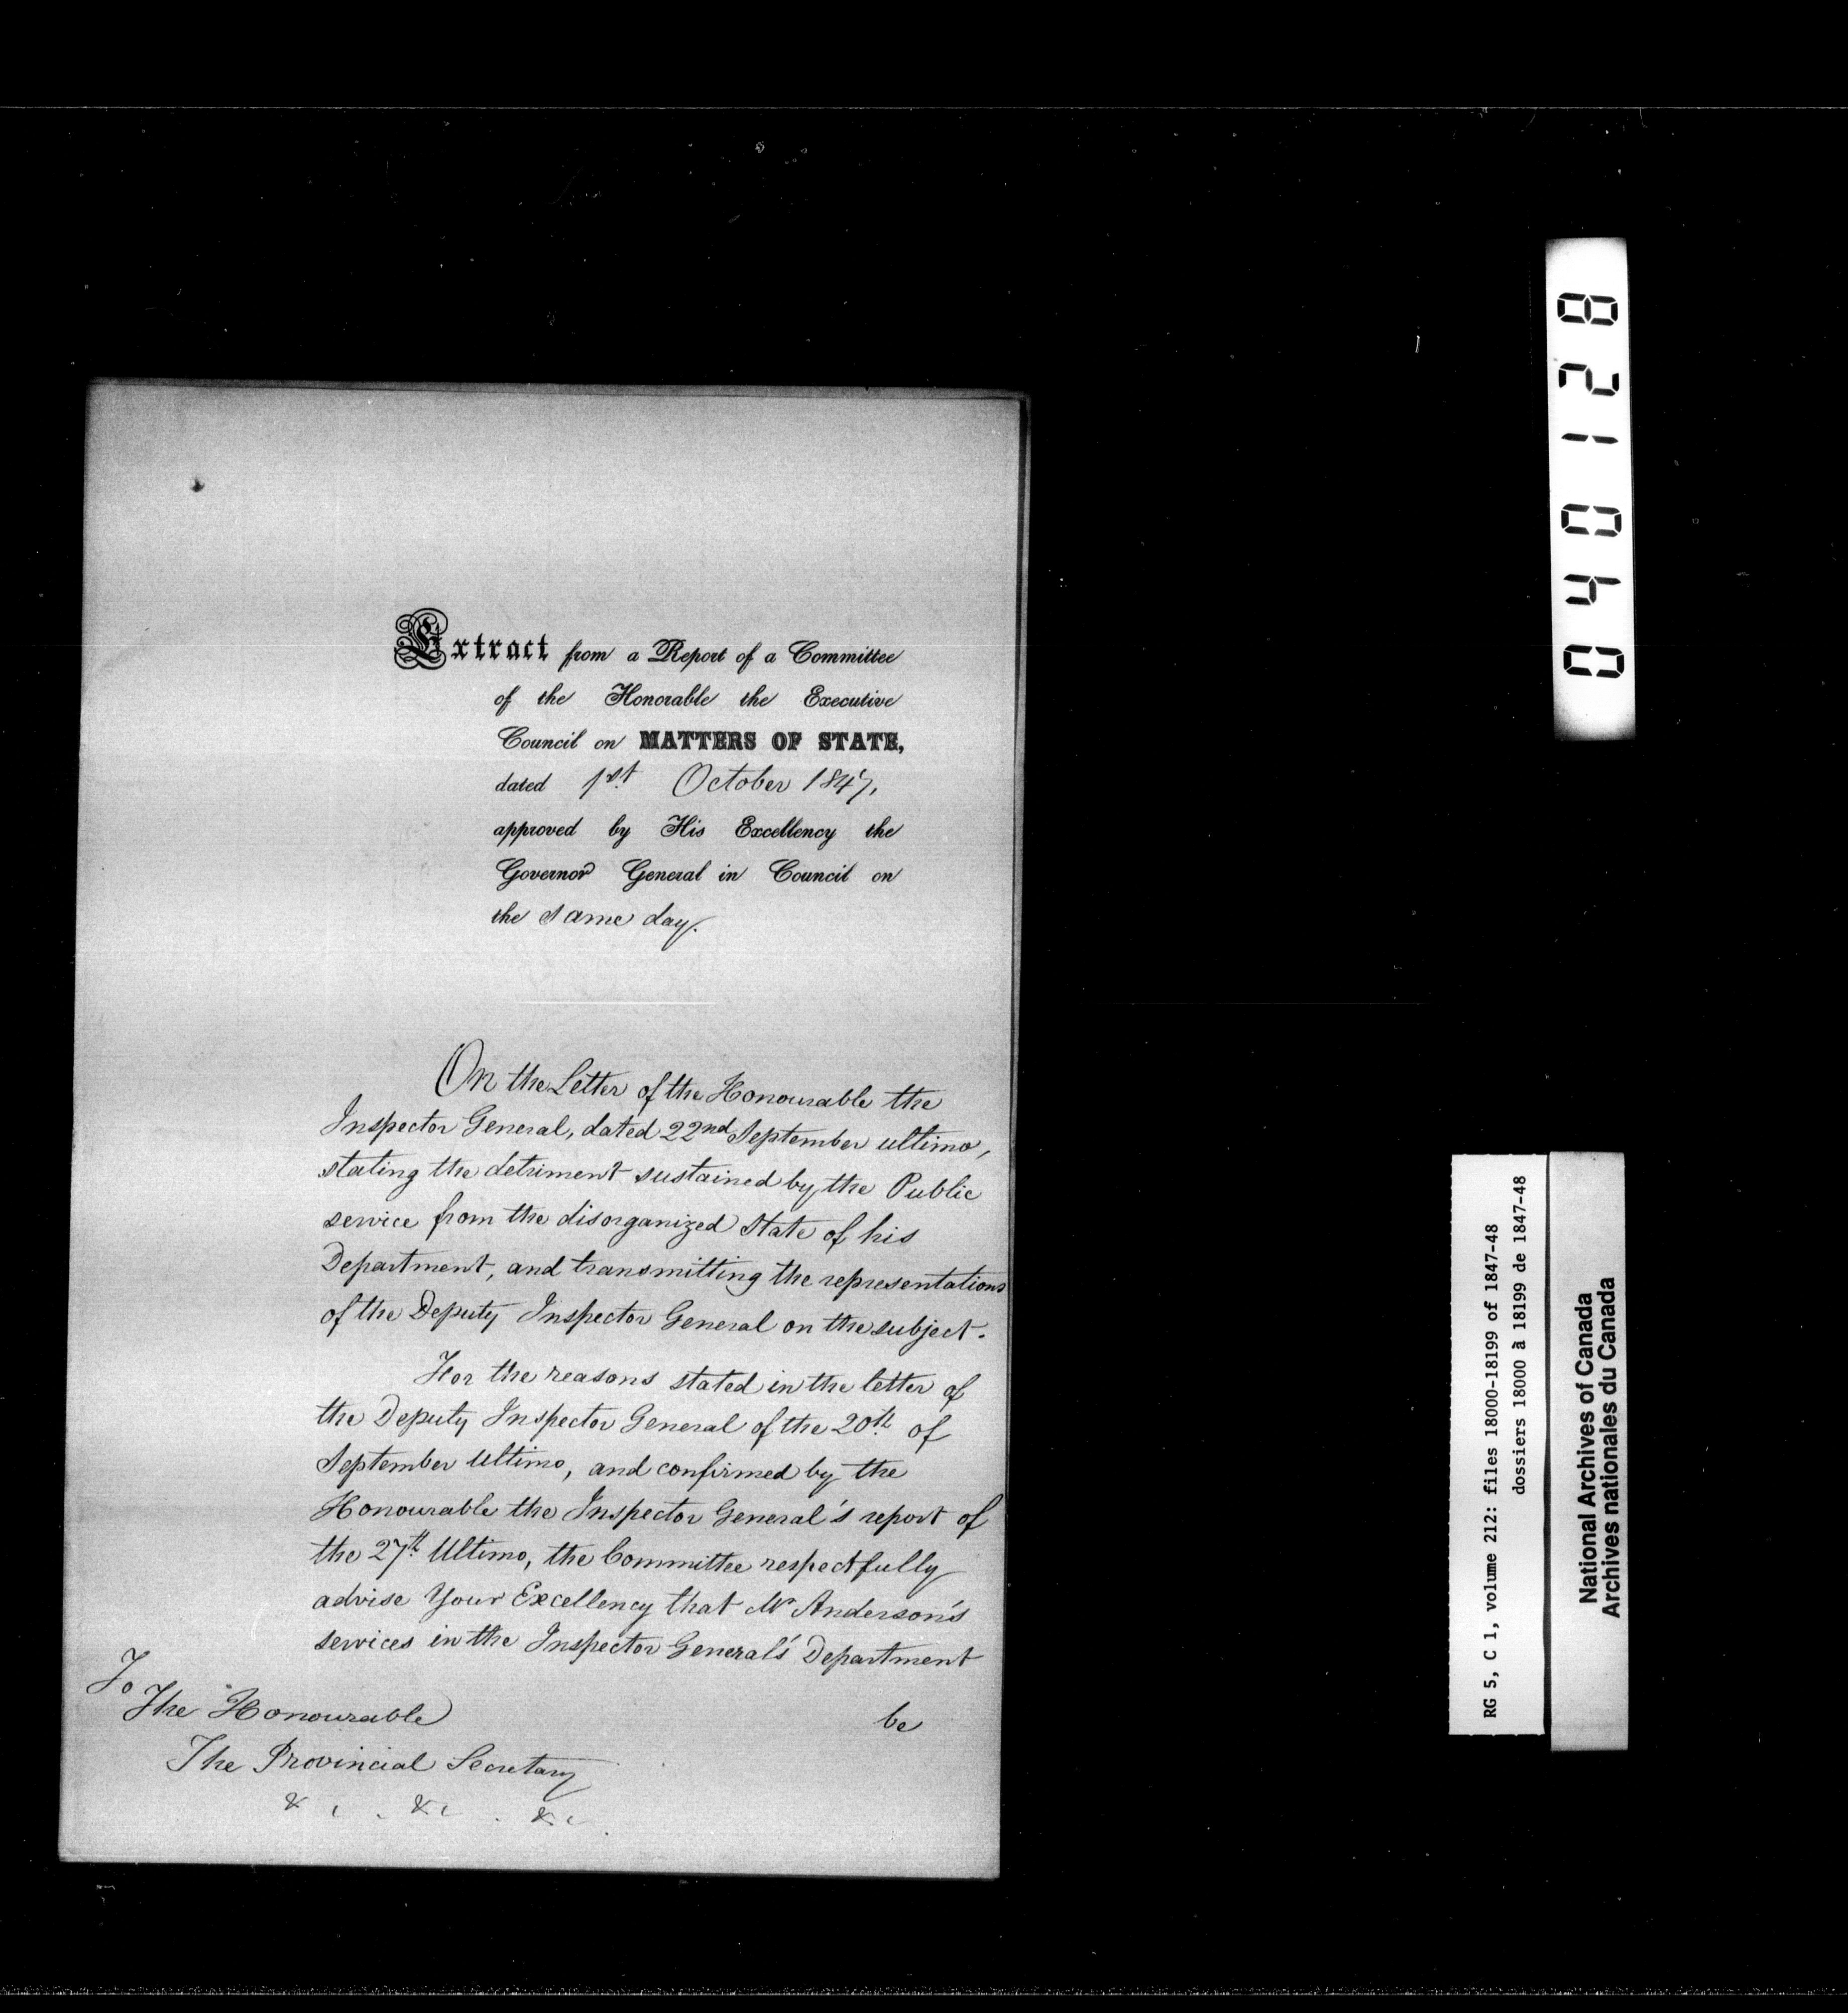 Extract from a Report of a Committee
of the Honorable the Executive
Council on MATTERS OF STATE,
dated 1st October 1847,
approved by His Excellency the
Governor General in Council on
the same day.
On the Letter of the Honourable the
Inspector General, dated 22nd September ultimo,
stating the detriment sustained by the Public
service from the disorganized State of his
Department, and transmitting the representations
of the Deputy Inspector General on the subject.
For the reasons stated in the letter of
the Deputy Inspector General of the 20th of
September Ultimo, and confirmed by the
Honourable the Inspector General's report of
the 27th Ultimo, the Committee respectfully
advise Your Excellency that Mr Anderson's
services in the Inspector General's Department
be
To
The Honourable
The Provincial Secretary
&c. &c. &c.
0 4 0 1 2 8
RG 5, C 1, volume 212: files 18000-18199 of 1847-48
dossiers 18000 à 18199 de 1847-48
National Archives of Canada
Archives nationales du Canada